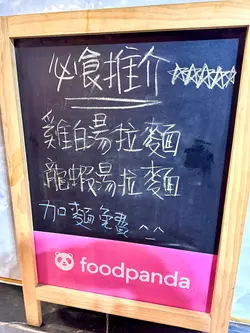 必食推介 ☆☆☆☆☆
雞白湯拉麵
龍蝦湯拉麵
加麵免費 ^^
foodpanda